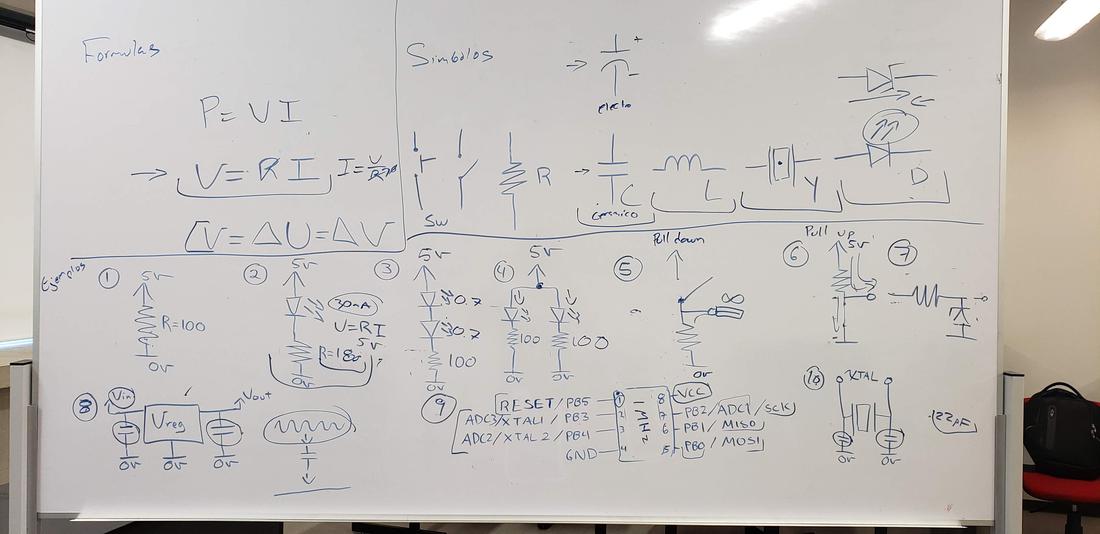 Formulas
P = V I
→ V = R I
I = V
[V = ΔU = ΔV
Simbolos
+
-
electro
SW
R
C
ceramico
L
Y
D
Ejemplos
① 5v
R=100
0v
② 5v
30mA
V=RI
5v
0v
③ 5v
0.7
0.7
100
0v
④ 5v
100
100
0v
0v
⑤ Pull down
∞
0v
⑥ Pull up
5v
0v
⑦
⑧ Vin
Vreg
Vout
0v
0v
0v
⑨ RESET/PB5
ADC3/XTAL1/PB3
ADC2/XTAL2/PB4
GND
1
2
3
4
8
7
6
5
VCC
PB2/ADC1/SCK
PB1/MISO
PB0/MOSI
⑩ XTAL
0v
0v
22pF